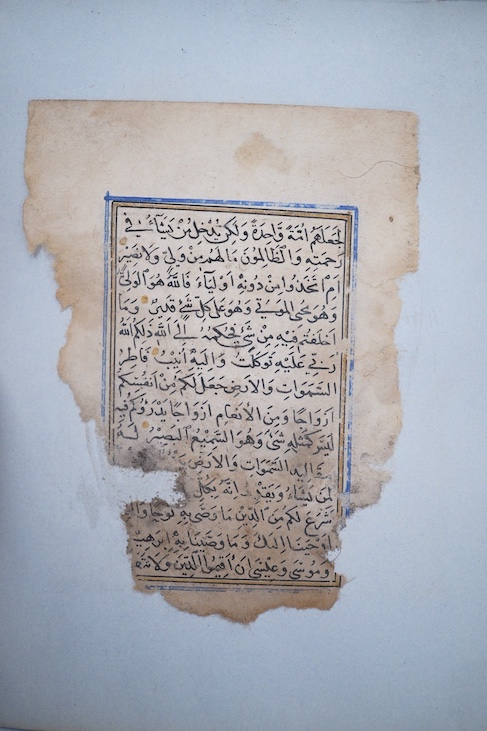 لجعلهم امة واحدة ولكن يدخل من يشاء في
رحمته والظالمون مالهم من ولي ولا نصير
ام اتخذوا من دونه اولياء فالله هو الولي
وهو يحي الموتى وهو على كل شئ قدير وما
اختلفتم فيه من شئ فحكمه الى الله ذلكم الله
ربي عليه توكلت واليه أنيب فاطر
السموات والارض جعل لكم من انفسكم
ازواجا ومن الأنعام ازواجا يذرؤكم فيه
ليس كمثله شئ وهو السميع البصير له
مقاليد السموات والأرض
لمن يشاء ويقدر انه بكل
شرع لكم من الدين ما وصى به نوحا وال
اوحينا اليك وما وصينا به ابرهيم
وموسى وعيسى ان اقيموا الدين ولا تتفـ